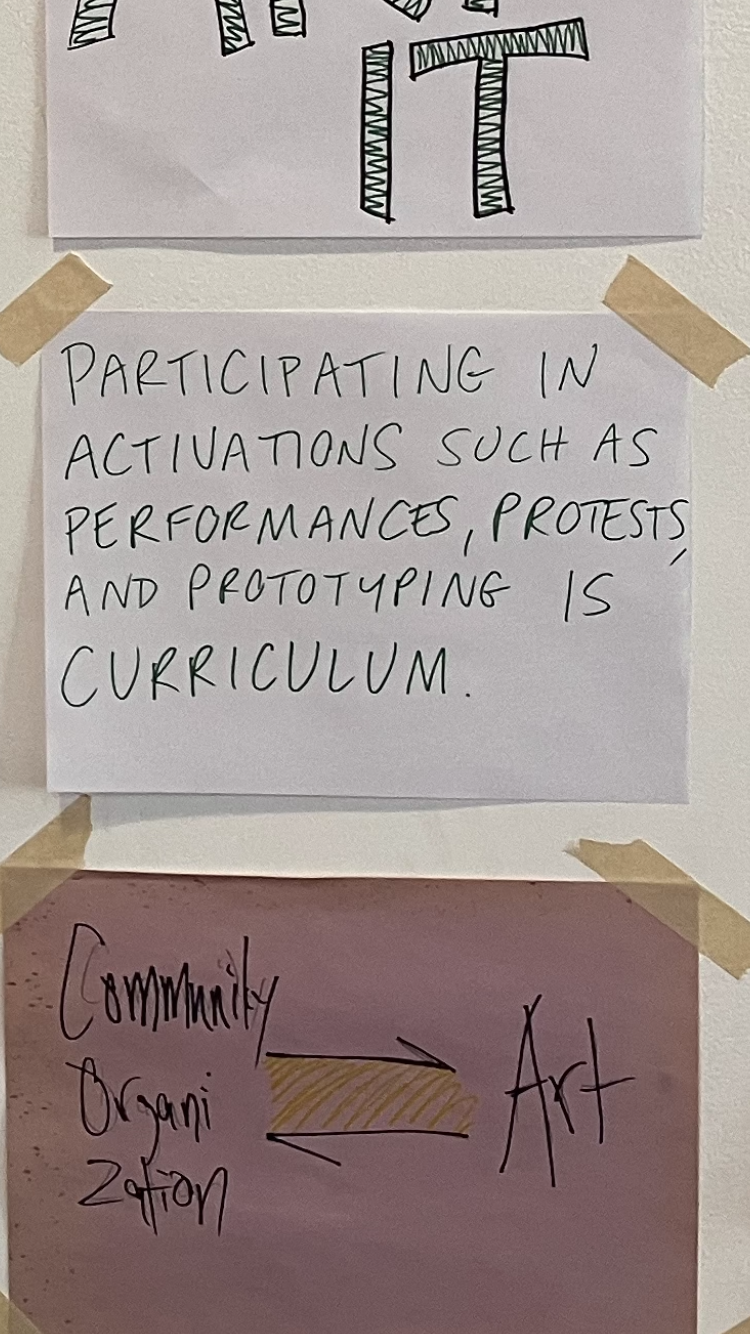 IT
PARTICIPATING IN
ACTIVATIONS SUCH AS
PERFORMANCES, PROTESTS,
AND PROTOTYPING IS
CURRICULUM.
Community
Organi
zation
Art